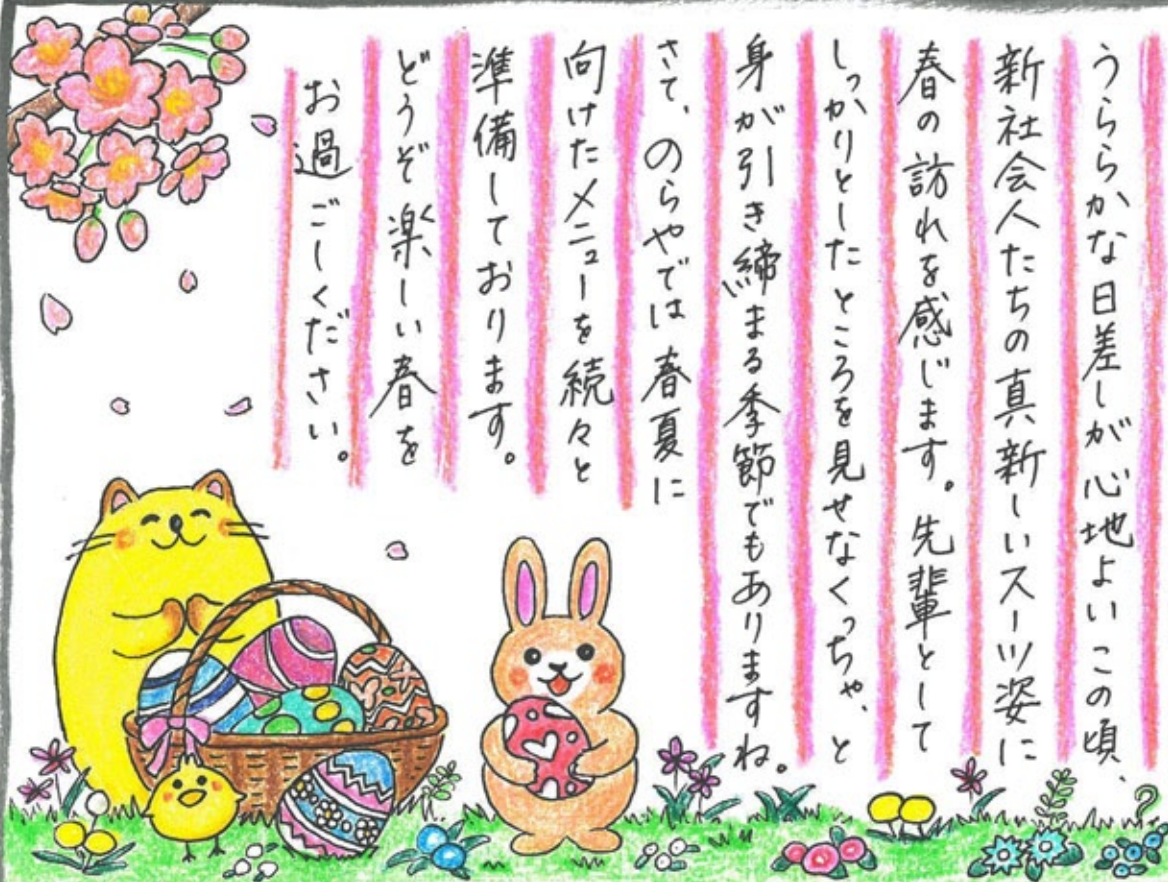 うららかな日差しが心地よいこの頃、
新社会人たちの真新しいスーツ姿に
春の訪れを感じます。先輩として
しっかりとしたところを見せなくっちゃ、と
身が引き締まる季節でもありますね。
さて、のらやでは春夏に
向けたメニューを続々と
準備しております。
どうぞ楽しい春を
お過ごしください。